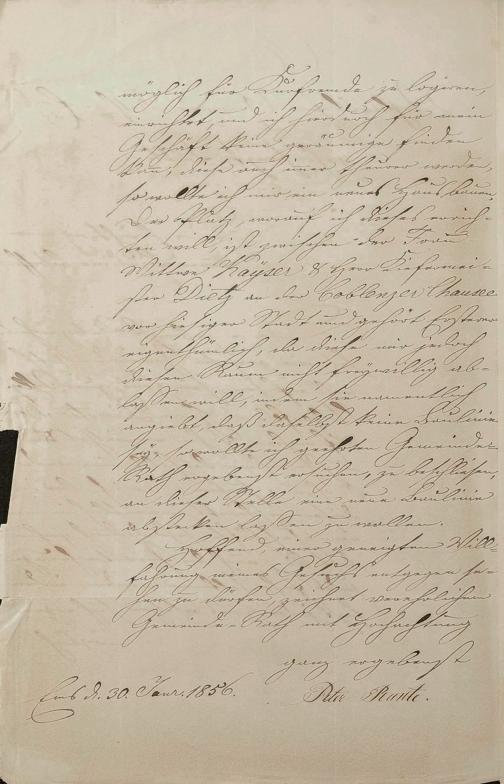 möglich für Kurfremde zu logiren,
einrichtet und ich hierdurch für mein
Geschäft keine geräumige finden
kann, diese auch imer theurer werden,
so wollte ich mir ein neues Haus bauen.
Der Platz, worauf ich dieses errich-
ten will, ist zwischen der Frau
Wittwe Kaÿser & Herr Kiefermei-
ster Dietz an der Coblenzer Chausee
vor hiesiger Stadt und gehört Ersterer
eigenthümlich, da diese mir jedoch
diesen Raum nicht freywillig ab-
lassen will, indem sie namentlich
angiebt, daß daselbst keine Baulinie
seÿ, so wollte ich geehrten Gemeinde-
Rath ergebenst ersuchen, zu beschließen,
an dieser Stelle eine neue Baulinie
abstecken lassen zu wollen.
Hoffend, einer geneigten Will-
fahrung meines Gesuchs entgegen se-
hen zu dürfen zeichnet verehrlichem
Gemeinde-Rath mit Hochachtung
ganz ergebenst
Ems d. 30. Janr. 1856.